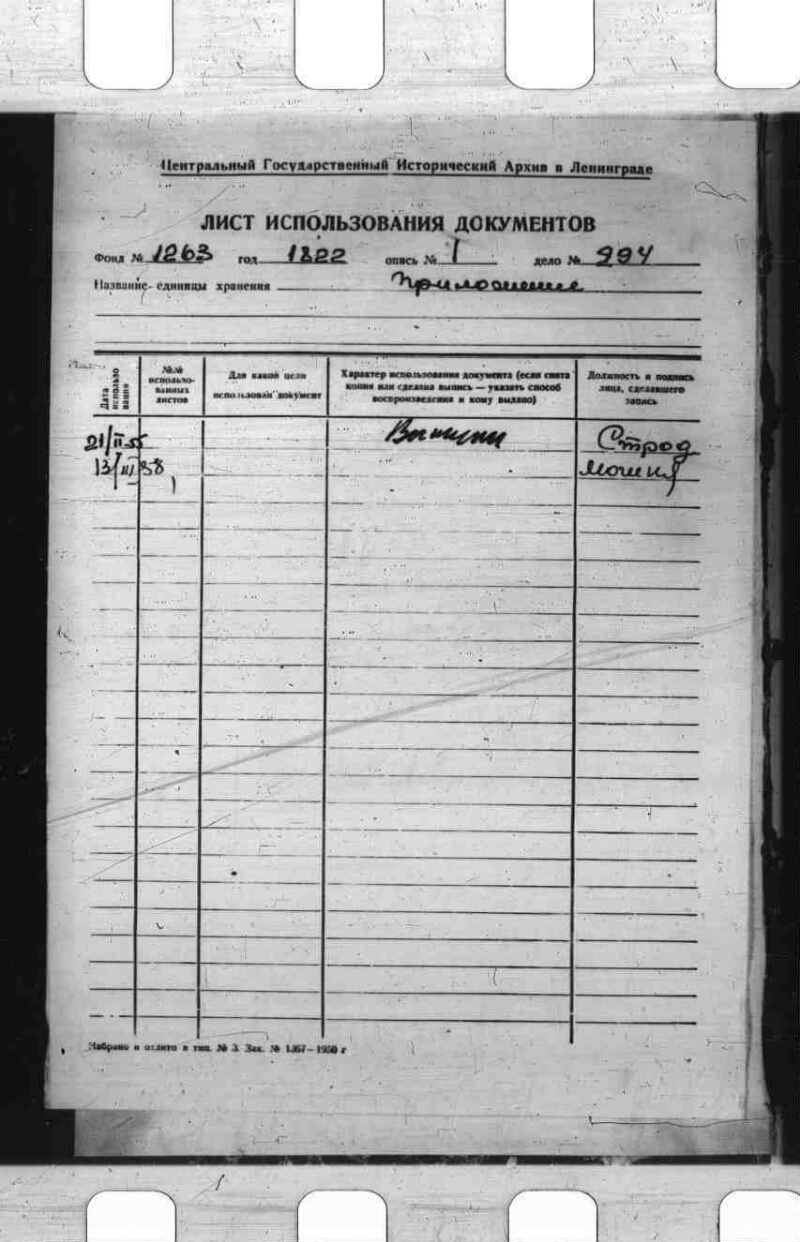 Центральный Государственный Исторический Архив в Ленинграде
ЛИСТ ИСПОЛЬЗОВАНИЯ ДОКУМЕНТОВ
Фонд № 1263 год 1822 опись № 1 дело № 294
Название единицы хранения Приложение
Дата использования
№№ использо-
ванных
листов
Для какой цели
использован документ
Характер использования документа (если снята
копия или сделана выпись — указать способ
воспроизведения и кому выдано)
Должность и подпись
лица, сделавшего
запись
21/II 55 Выписки
13/III 58
Набрано и отлито в тип. № 3. Зак. № 1367—1950 г